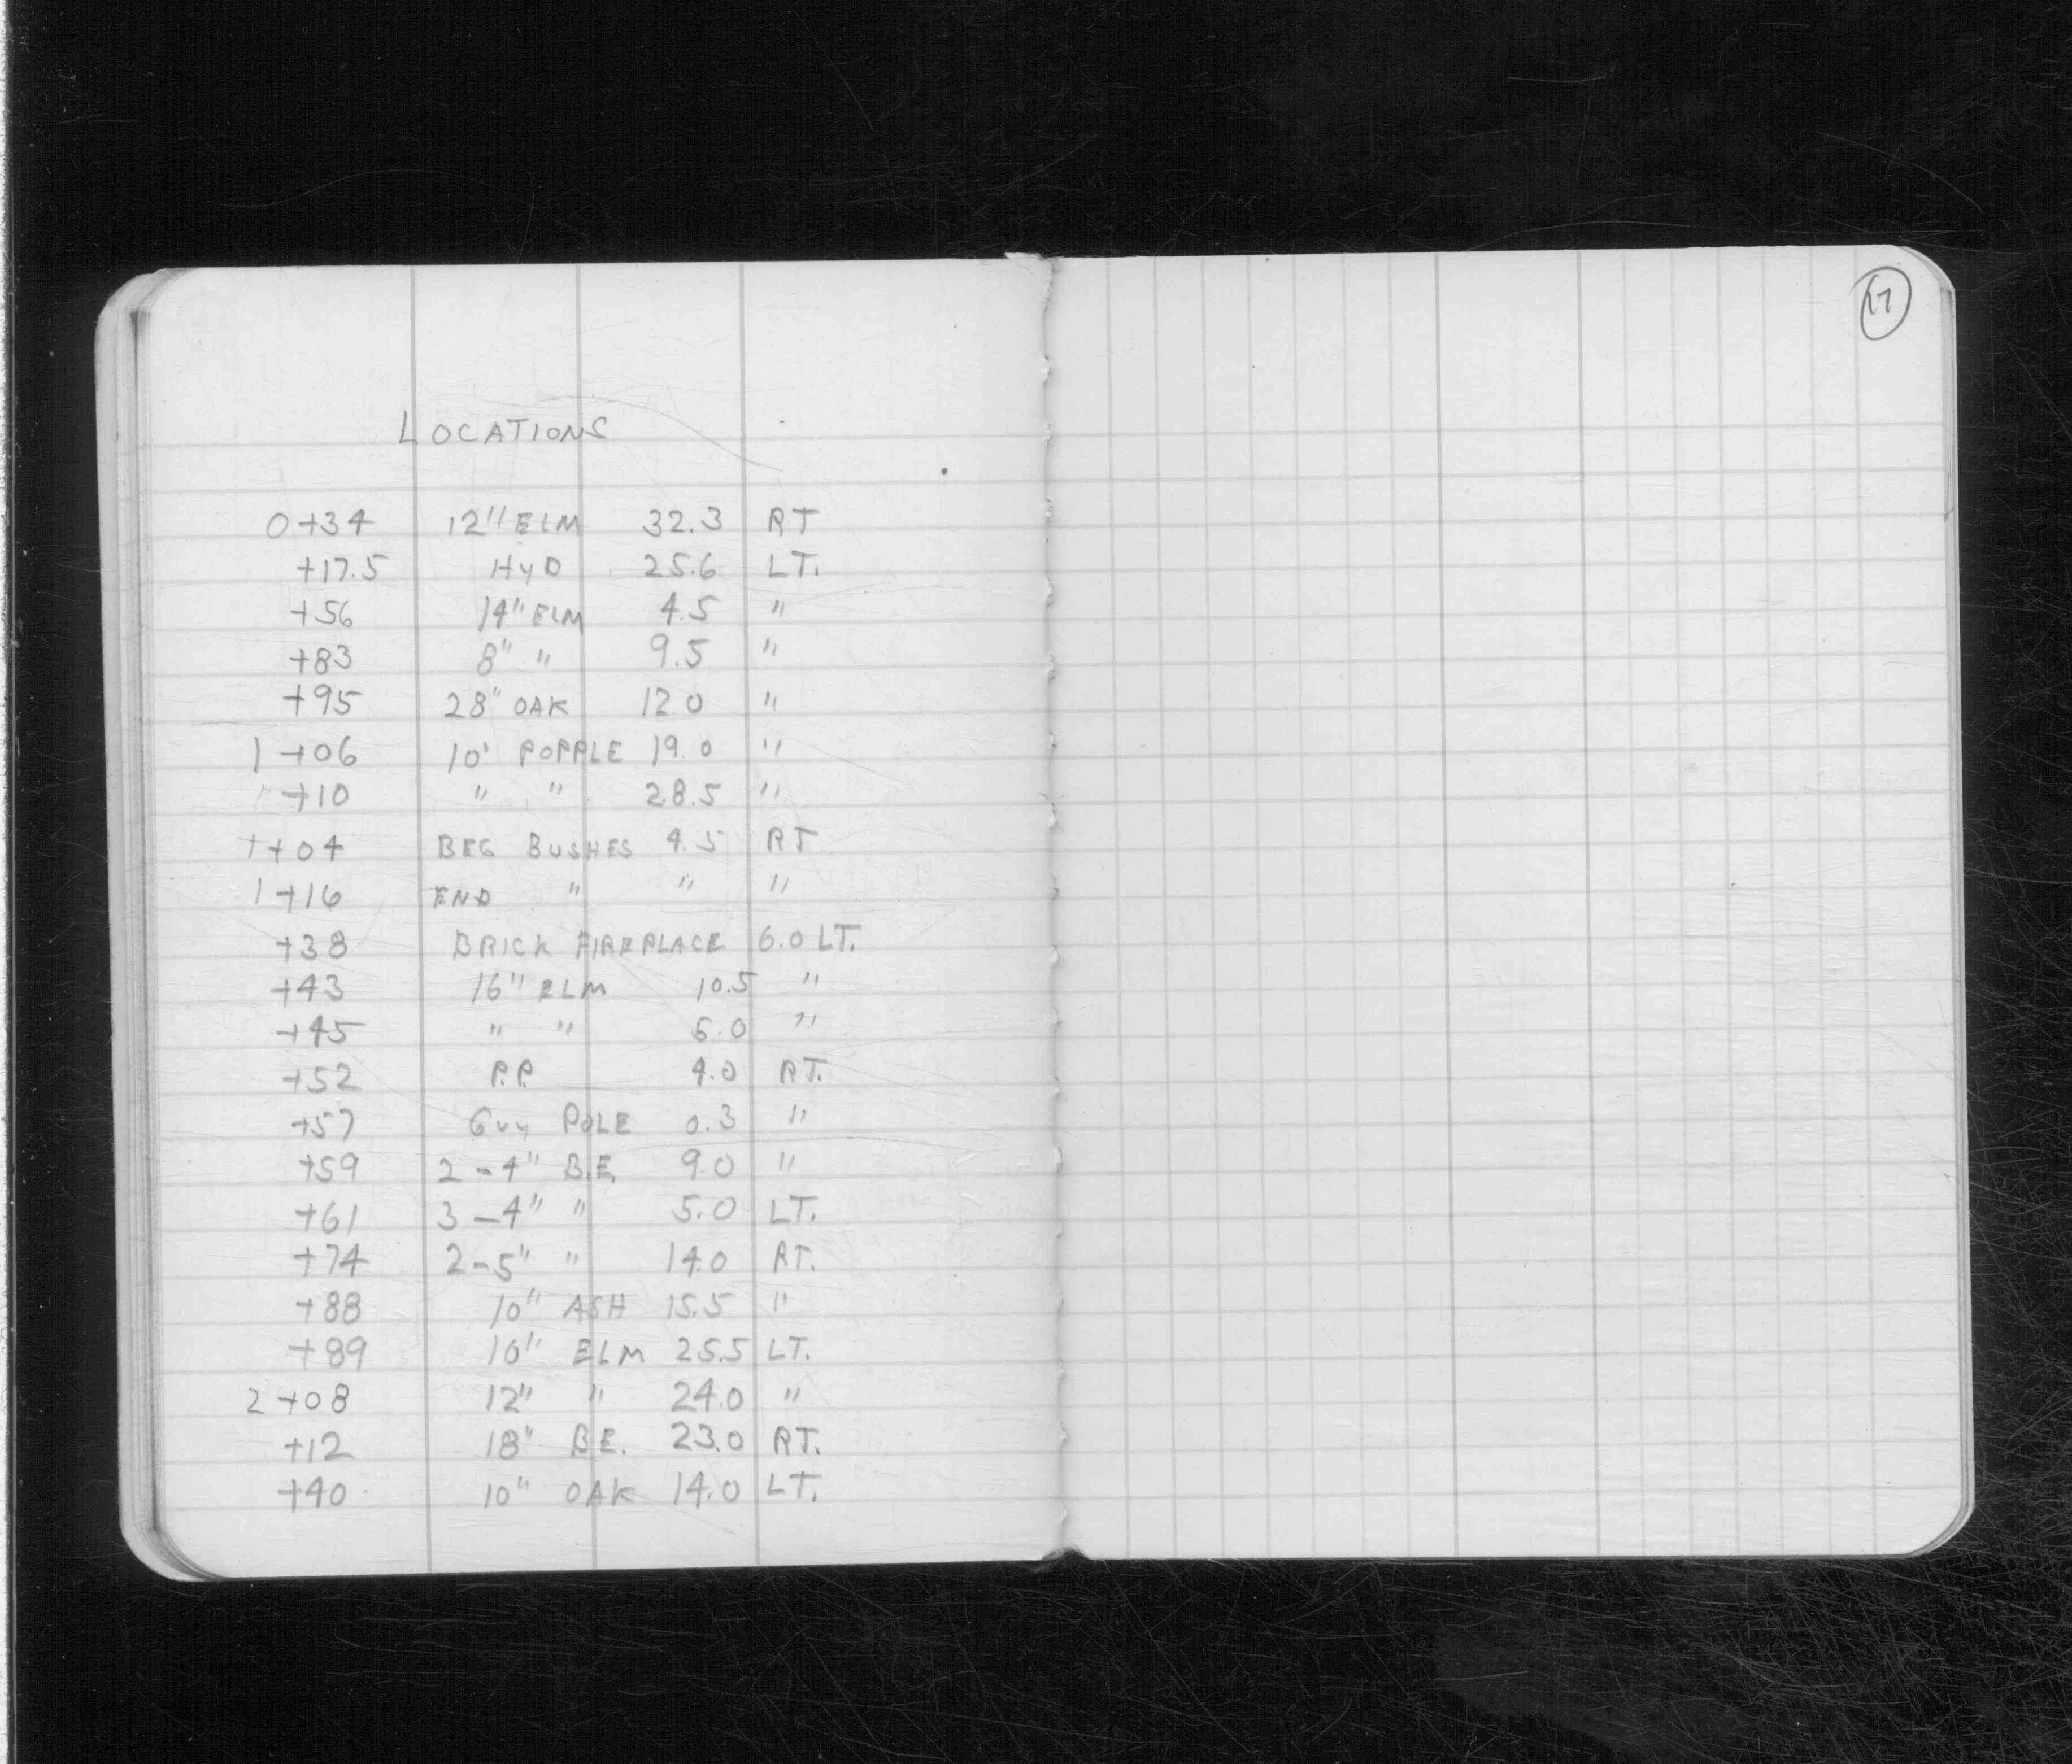 17
LOCATIONS
0+34 12" ELM 32.3 RT
+17.5 HYD 25.6 LT.
+56 14" ELM 4.5 "
+83 8" " 9.5 "
+95 28" OAK 12.0 "
1+06 10' POPPLE 19.0 "
+10 " " 28.5 "
1+04 BEG BUSHES 4.5 RT
1+16 END " " "
+38 BRICK FIREPLACE 6.0 LT.
+43 16" ELM 10.5 "
+45 " " "
+52 P.P. 4.0 RT.
+57 GUY POLE 0.3 "
+59 2-4" B.E. 9.0 "
+61 3-4" " 5.0 LT.
+74 2-5" " 14.0 RT.
+88 10" ASH 15.5 "
+89 ELM 25.5 LT.
2+08 12" " 24.0 "
+12 18" B.E. 23.0 RT.
+40 10" OAK 14.0 LT.